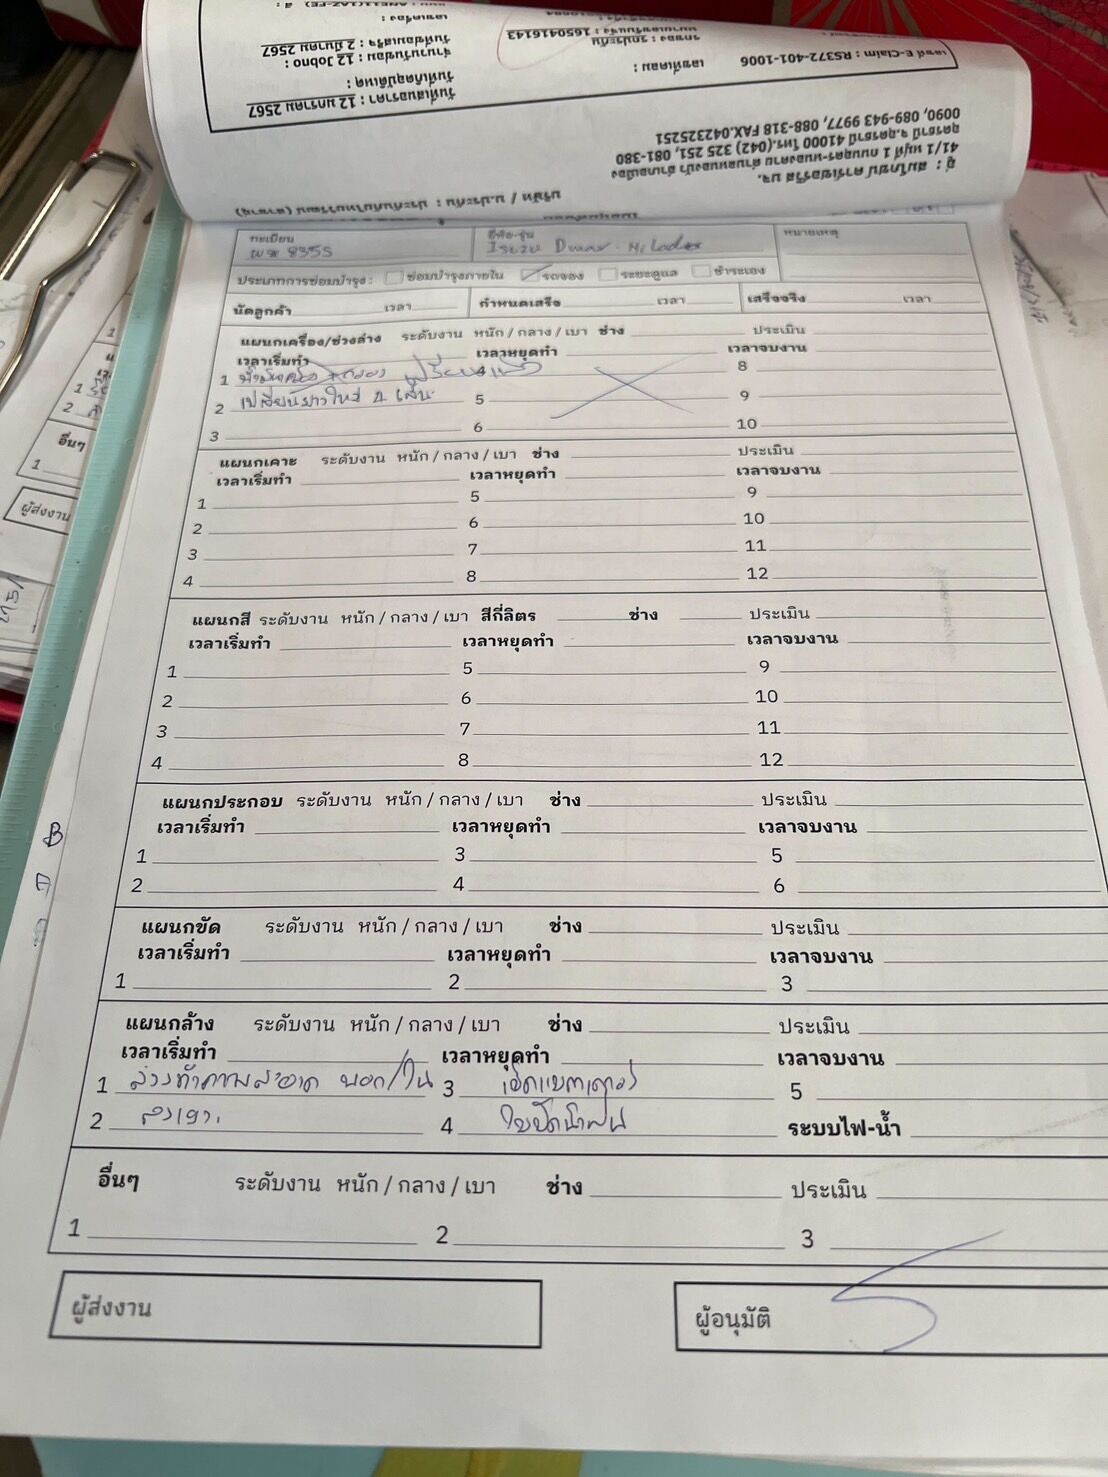 บริษัท / บ.ประกัน : ประกันภัยไทยวิวัฒน์ (สาขา)
อู่ : สมโภชน์ คาร์เซอร์วิส บจ.
41/1 หมู่ที่ 1 ถนนอุดร-หนองคาย ตำบลหนองบัว อำเภอเมือง
อุดรธานี จ.อุดรธานี 41000 โทร.(042) 325 251, 081-380
0090, 089-943 9977, 088-318 FAX.042325251
วันที่เสนอราคา : 12 มกราคม 2567
วันที่เกิดอุบัติเหตุ :
จำนวนวันซ่อม : 12 Jobno :
วันที่ซ่อมเสร็จ : 2 มีนาคม 2567
เลขเครื่อง :
เลขที่ E-Claim : RS372-401-1006 เลขที่เคลม :
รถของ : รถประกัน
หมายเลขรับแจ้ง : 1650416143
ทะเบียน
8355
ยี่ห้อ-รุ่น
Isuzu Dmax
หมายเหตุ
ประเภทการซ่อมบำรุง : ซ่อมบำรุงภายใน รถจอง ระยะดูแล ชำระเอง
นัดลูกค้า เวลา กำหนดเสร็จ เวลา เสร็จจริง เวลา
แผนกเครื่อง/ช่วงล่าง ระดับงาน หนัก / กลาง / เบา ช่าง ประเมิน
เวลาเริ่มทำ เวลาหยุดทำ เวลาจบงาน
1 4 8
2 เปลี่ยนยางใหม่ 4 เส้น 5 9
3 6 10
แผนกเคาะ ระดับงาน หนัก / กลาง / เบา ช่าง ประเมิน
เวลาเริ่มทำ เวลาหยุดทำ เวลาจบงาน
1 5 9
2 6 10
3 7 11
4 8 12
แผนกสี ระดับงาน หนัก / กลาง / เบา สีกี่ลิตร ช่าง ประเมิน
เวลาเริ่มทำ เวลาหยุดทำ เวลาจบงาน
1 5 9
2 6 10
3 7 11
4 8 12
แผนกประกอบ ระดับงาน หนัก / กลาง / เบา ช่าง ประเมิน
เวลาเริ่มทำ เวลาหยุดทำ เวลาจบงาน
1 3 5
2 4 6
แผนกขัด ระดับงาน หนัก / กลาง / เบา ช่าง ประเมิน
เวลาเริ่มทำ เวลาหยุดทำ เวลาจบงาน
1 2 3
แผนกล้าง ระดับงาน หนัก / กลาง / เบา ช่าง ประเมิน
เวลาเริ่มทำ เวลาหยุดทำ เวลาจบงาน
1 ล้างทำความสะอาด นอก/ใน 3 เช็คแบตเตอรี่ 5
2 4 ใบปัดน้ำฝน ระบบไฟ-น้ำ
อื่นๆ ระดับงาน หนัก / กลาง / เบา ช่าง ประเมิน
1 2 3
ผู้ส่งงาน
ผู้อนุมัติ
อื่นๆ
1
ผู้ส่งงาน
B